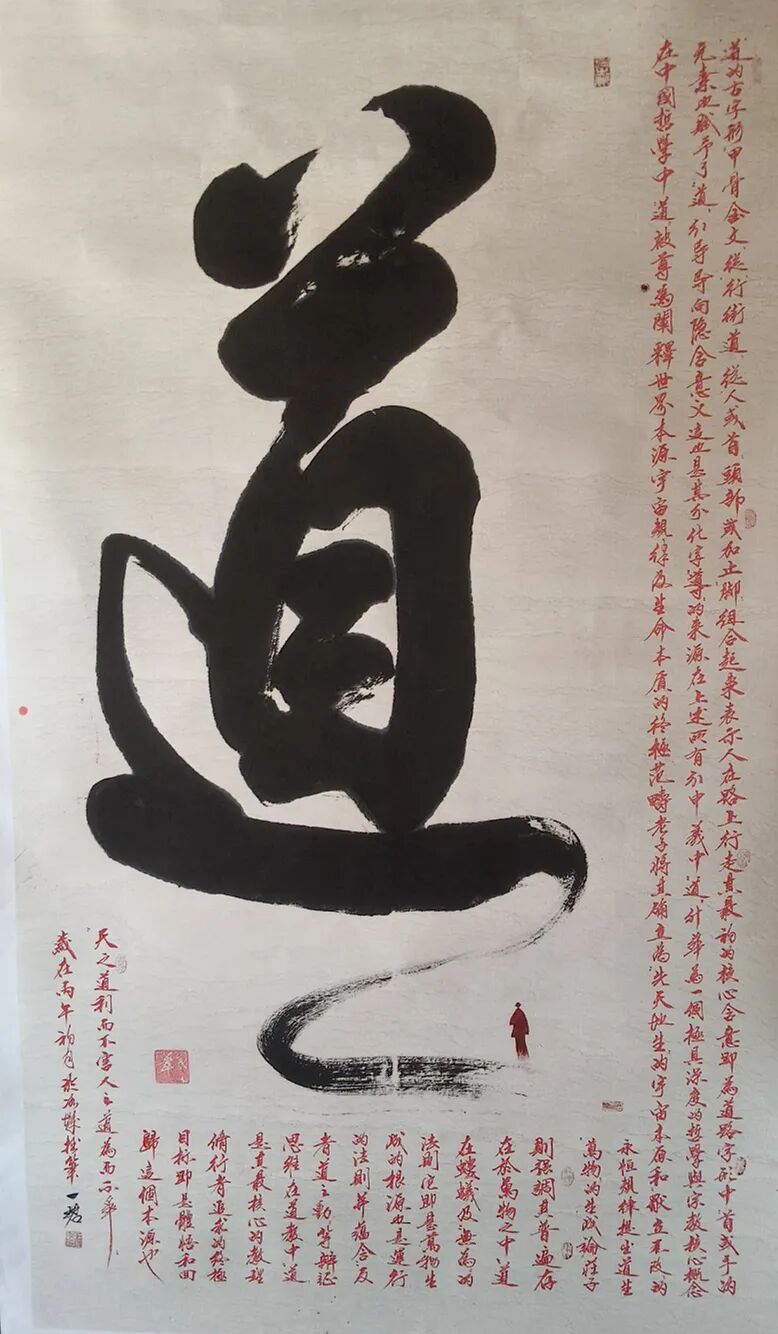 道
道的古字形甲骨金文從行術道從人或首頭部或加止脚組合起来表示人在路上行走其最初的核心含意即為道路字形中首或手的
元素也賦予了道引导导向隐含意义这也是其分化字導的来源在上述所有引申義中道升華為一個極具深度的哲學與宗教核心概念
在中國哲學中道被尊為闡釋世界本源宇宙規律及生命本质的终極范疇老子將其确立為先天地生的宇宙本原和獨立不改的
永恒規律提出道生
萬物的生成論莊子
則强調其普遍存
在於萬物之中道
在螻蟻及無為的
法則它即是萬物生
成的根源也是運行
的法則并蕴含反
者道之動等辯证
思维在道教中道
是其最核心的教理
修行者追求的终極
目标即是體悟和回
歸這個本源也
天之道利而不害人之道為而不争
歲在丙午初月